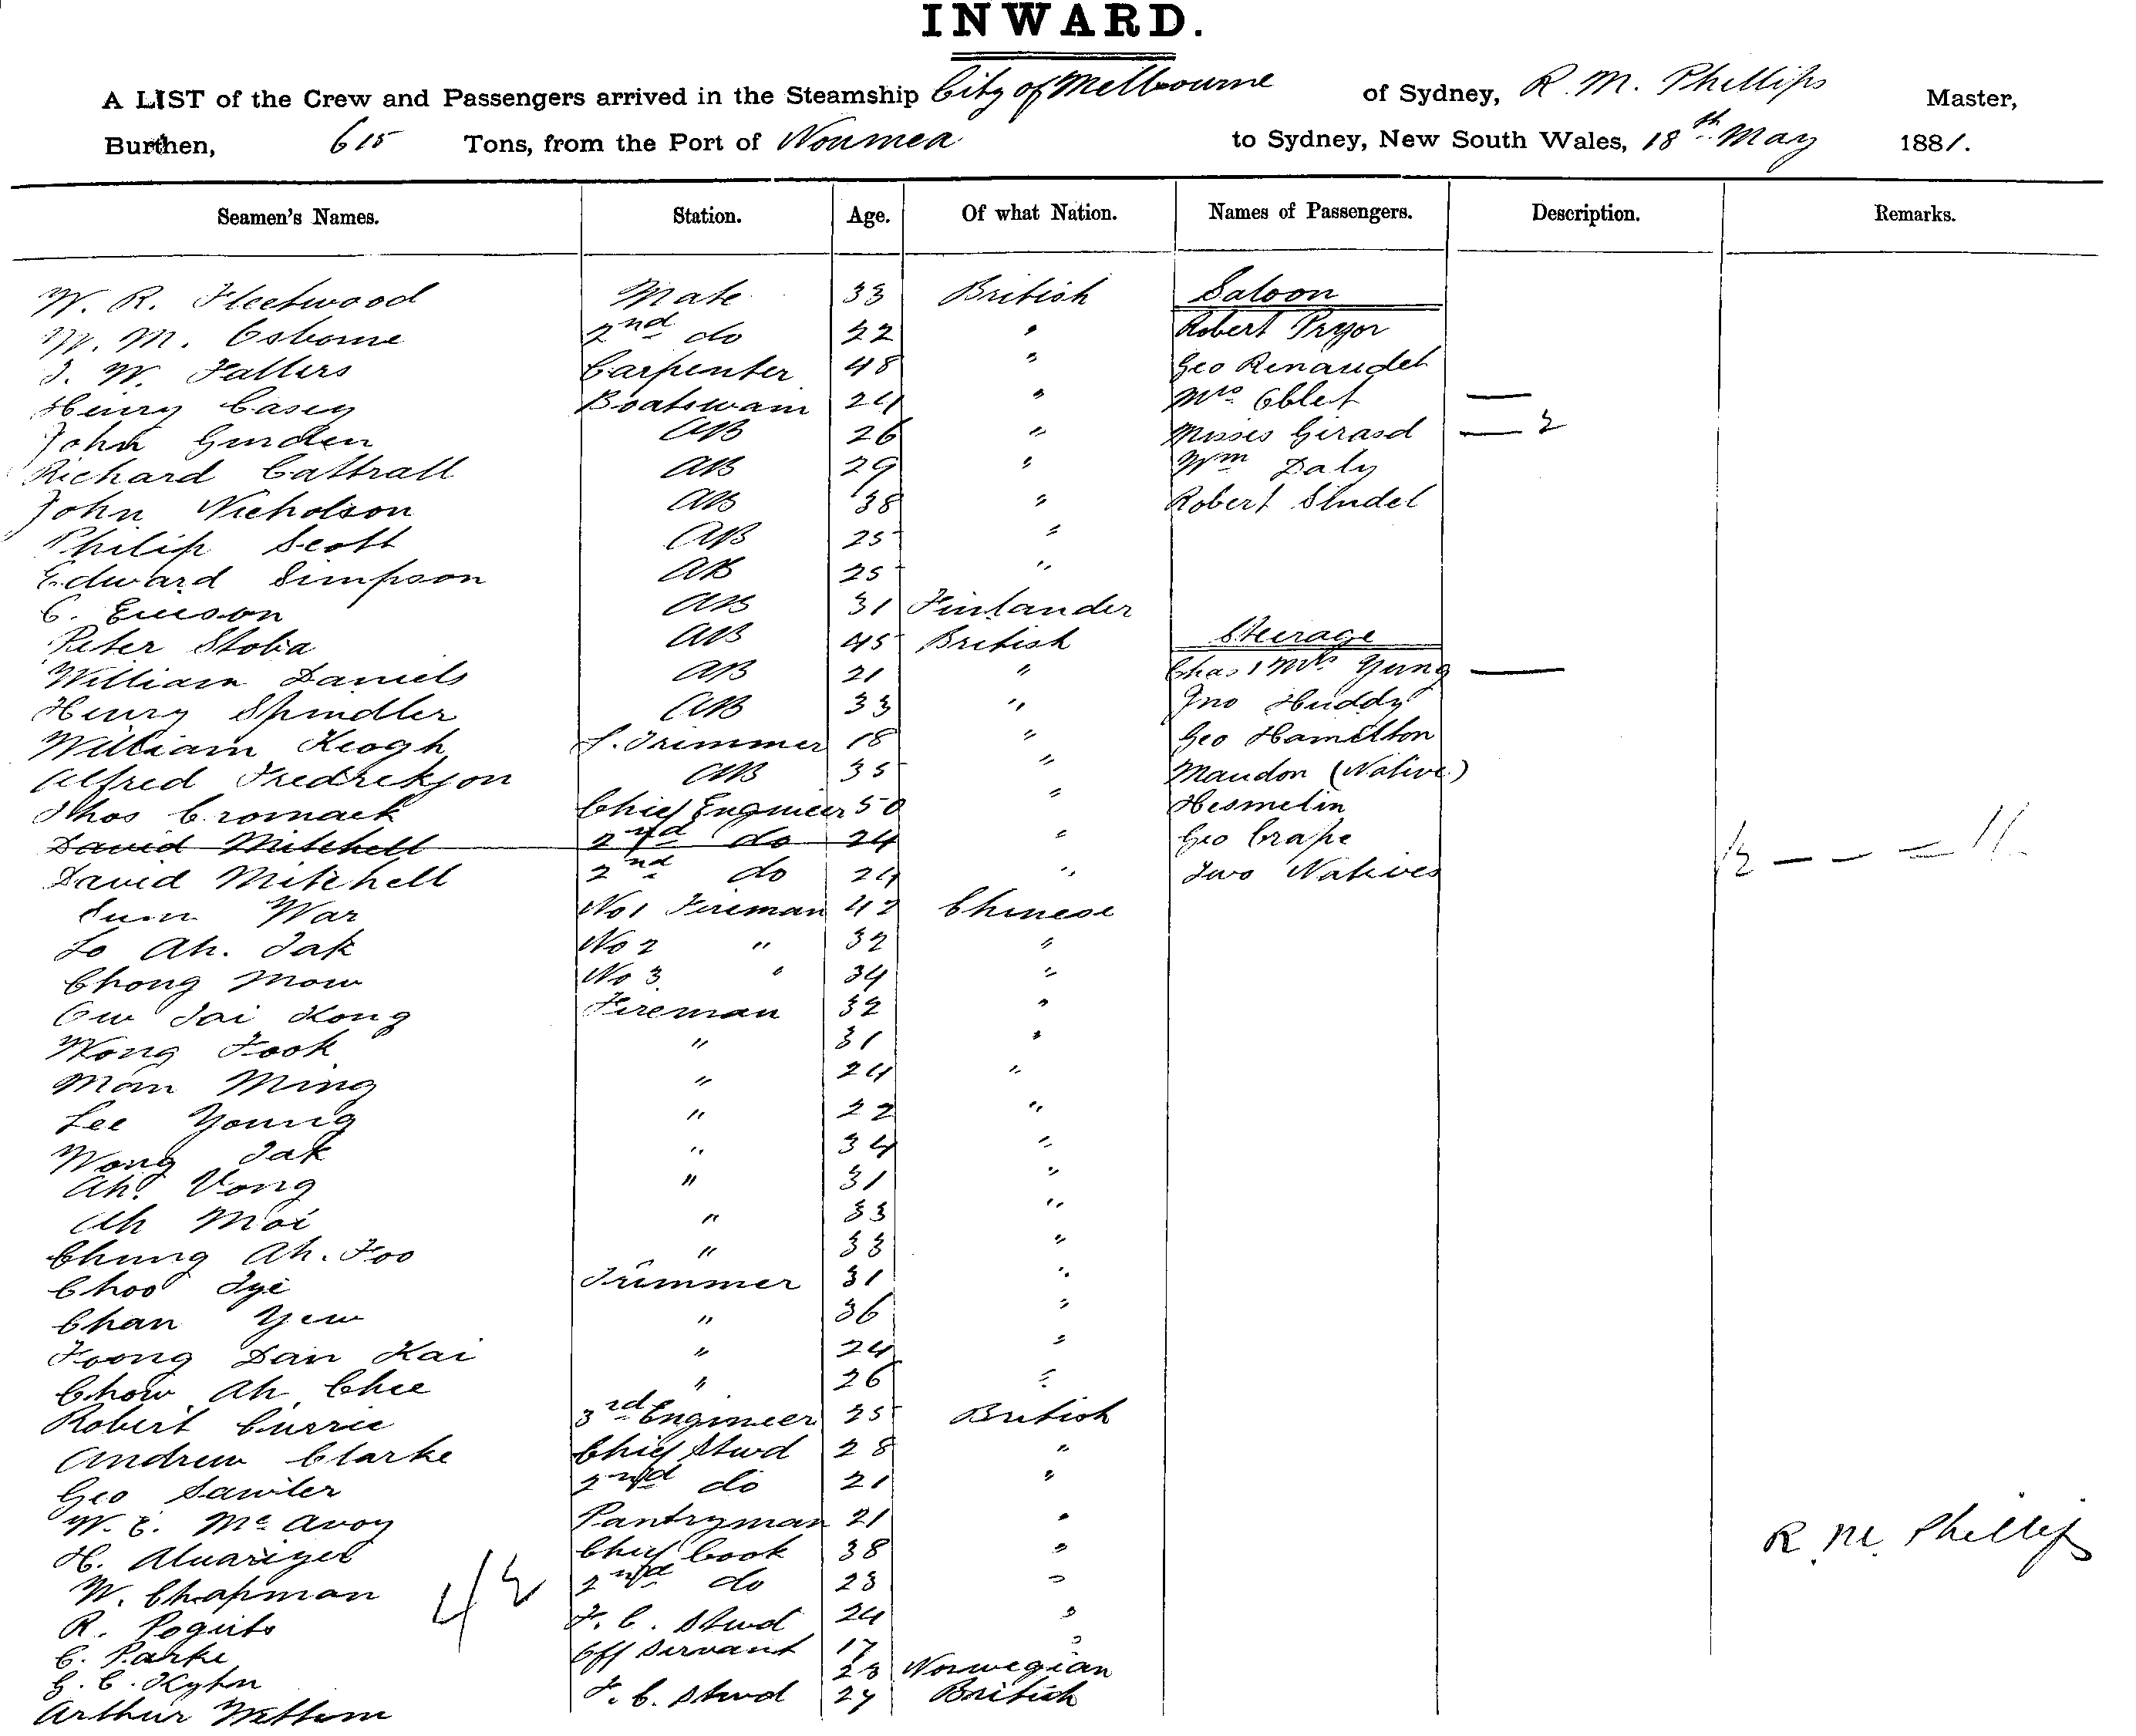 INWARD.
A LIST of the Crew and Passengers arrived in the Steamship City of Melbourne of Sydney, R. M. Phillips Master,
Burthen, 615 Tons, from the Port of Noumea to Sydney, New South Wales, 18th May 1881.
Seamen's Names. Station. Age. Of what Nation. Names of Passengers. Description. Remarks.
W. R. Fleetwood Mate 33 British Saloon
W. M. Osborne 2nd do 22 " Robert Pryor
J. W. Fallers Carpenter 48 " Geo Renaudet
Henry Casey Boatswain 24 " Mrs Oblet —
John AB 26 " Misses Girard — 2
Richard Cattrall AB 29 " Wm Daly
John Nicholson AB 38 " Robert Studel
Philip Scott AB 25 "
Edward Simpson AB 25 "
C. Ericson AB 31 Finlander
Peter Stobia AB 45 British Steerage
William Daniels AB 21 " Chas & Mrs Yung —
Henry Spindler AB 33 " Jno Huddy
William Keogh Trimmer 18 " Geo Hamilton
Alfred Fredrikson AB 35 " Maudon (Native)
Thos Cromack Chief Engineer 50 " Hesmelin
David Mitchell 2nd do 24 " Geo Crape
David Mitchell 2nd do 24 " Two Natives
Sum War No 1 Fireman 42 Chinese
Lo Ah. Tak No 2 " 32 "
Chong Mow No 3 " 34 "
Ow Tai Kong Fireman 32 "
Wong Fook " 31 "
Man Ming " 24 "
Lee Young " 22 "
Wong Tak " 34 "
Ah. Vong " 31 "
Ah Moi " 33 "
Chung Ah. Foo " 33 "
Choo Tye Trimmer 31 "
Chan Yew " 36 "
Foong Dan Kai " 24 "
Chow Ah Chee " 26 "
Robert Currie 3rd Engineer 25 British
Andrew Clarke Chief Stwd 28 "
Geo Sawter 2nd do 21 "
W. E. McAvoy Pantryman 21 "
H. Chief Cook 38 "
W. Chapman 2nd do 23 "
R. F. C. Stwd 24 "
C. Parke Off Servant 17 "
G. C. Kyhn 23 Norwegian
Arthur F. C. Stwd 27 British
43
R. M. Phillips